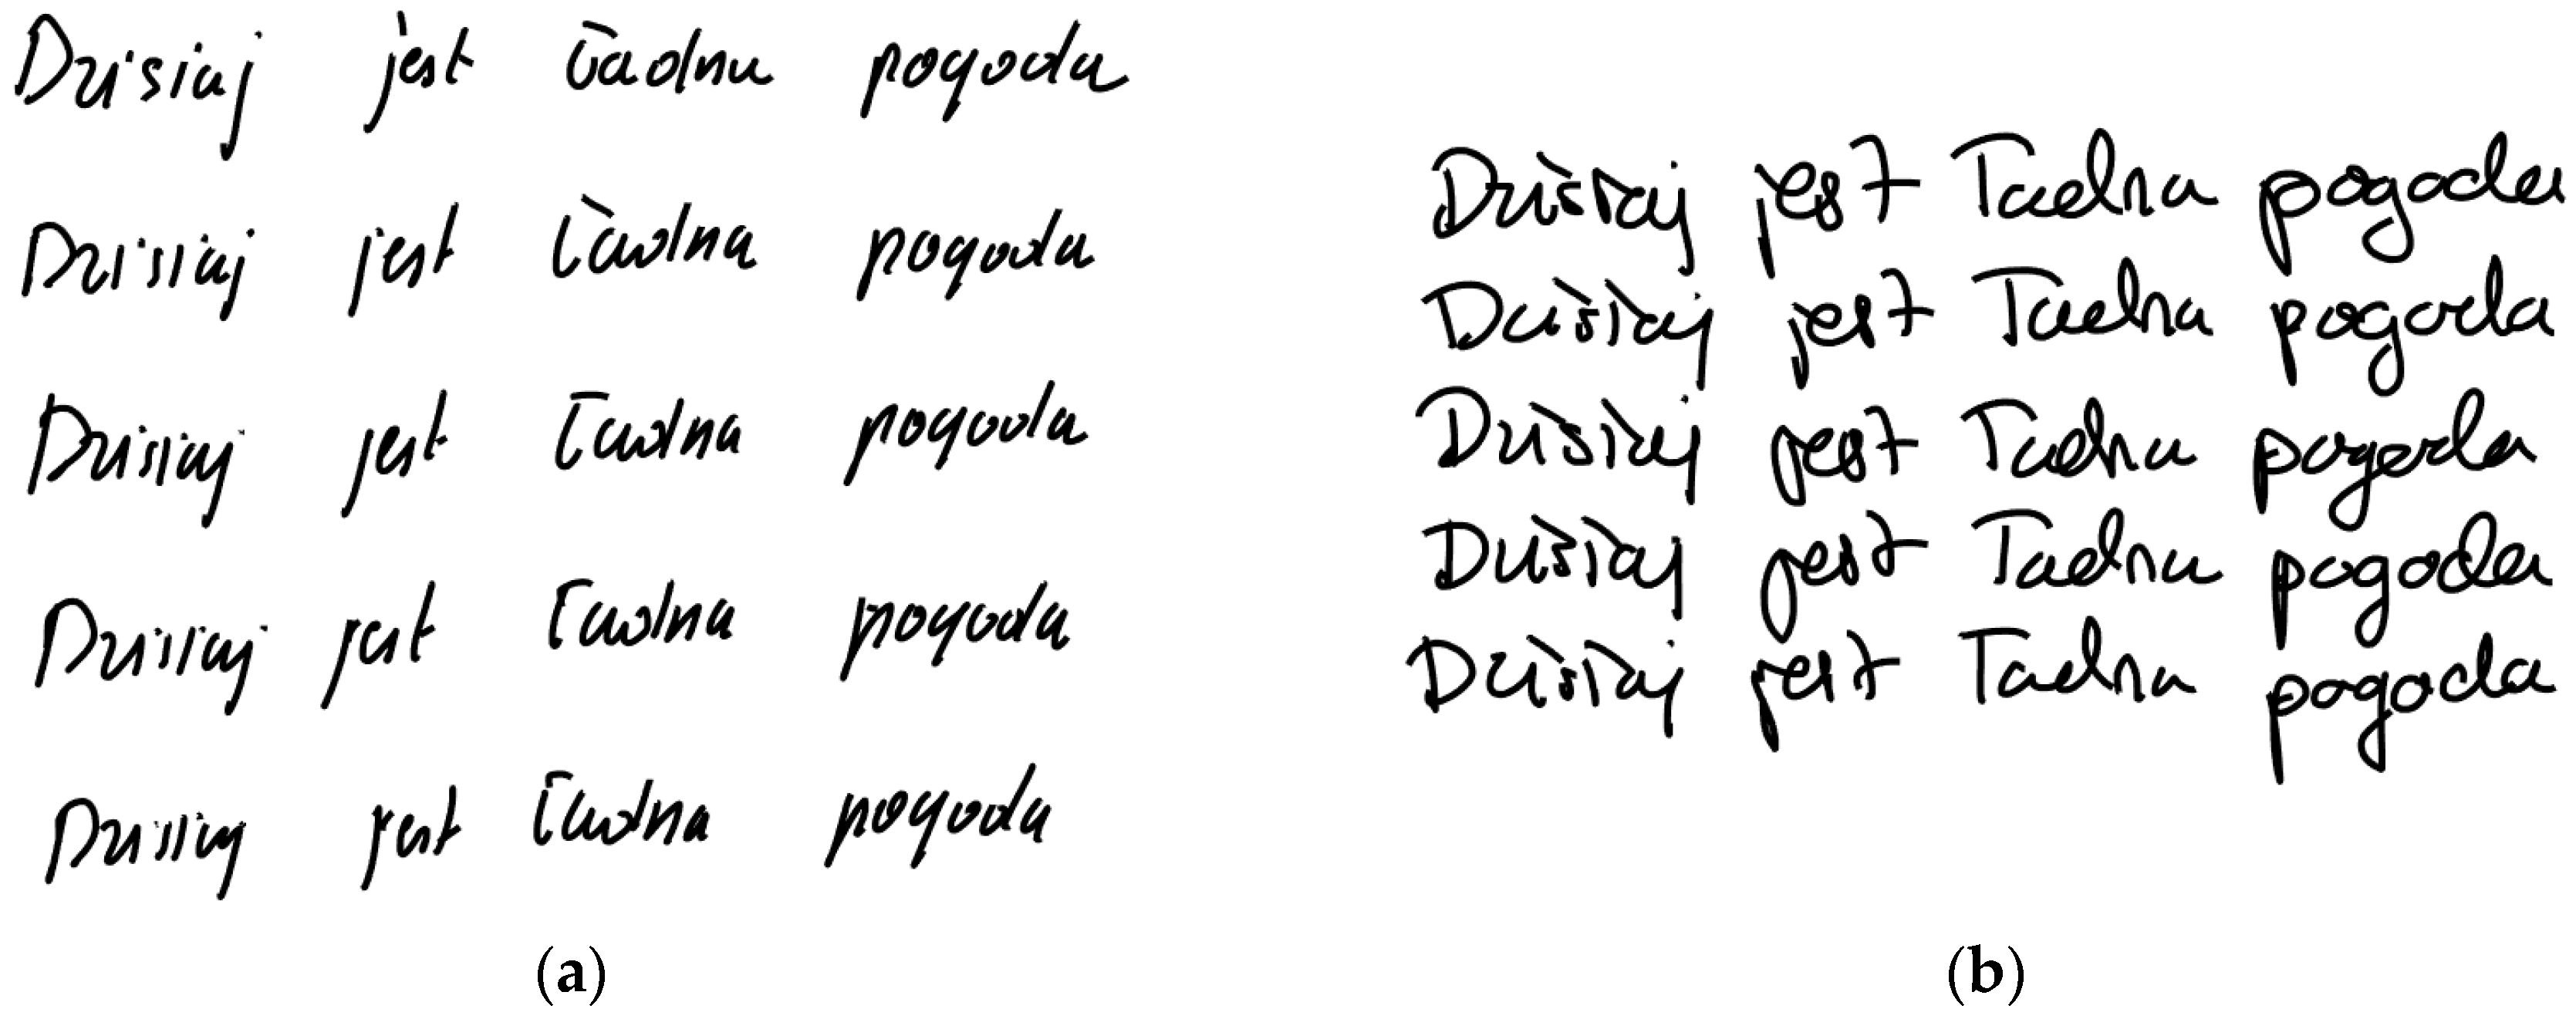 Dzisiaj jest ładna pogoda
Dzisiaj jest ładna pogoda
Dzisiaj jest ładna pogoda
Dzisiaj jest ładna pogoda
Dzisiaj jest ładna pogoda
(a)
Dzisiaj jest ładna pogoda
Dzisiaj jest ładna pogoda
Dzisiaj jest ładna pogoda
Dzisiaj jest ładna pogoda
Dzisiaj jest ładna pogoda
(b)